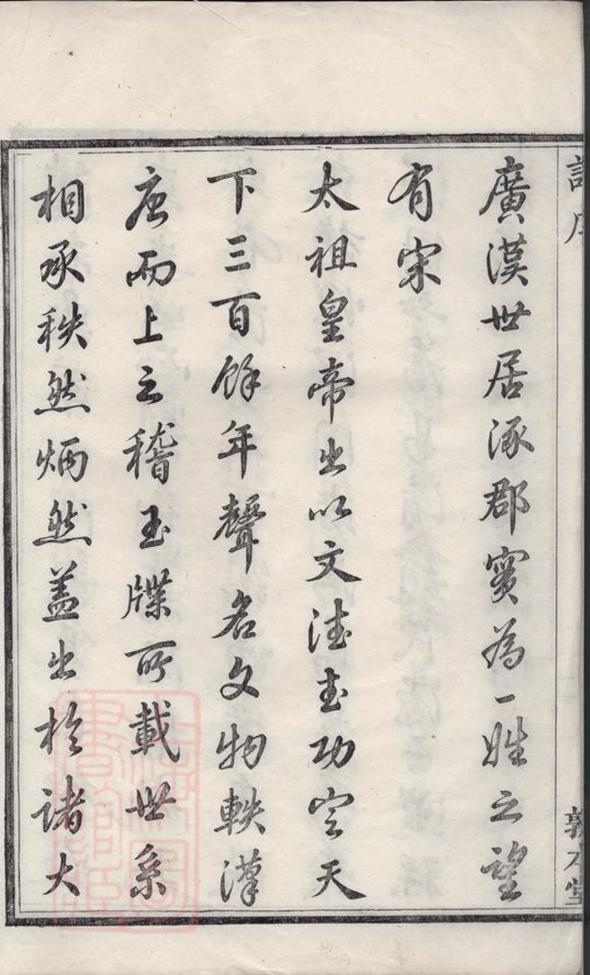 廣漢世居涿郡實為一姓之望
有宋
太祖皇帝出以文德武功定天
下三百餘年聲名文物軼漢
唐而上之稽玉牒所載世系
相承秩然炳然蓋出於諸大
敦本堂